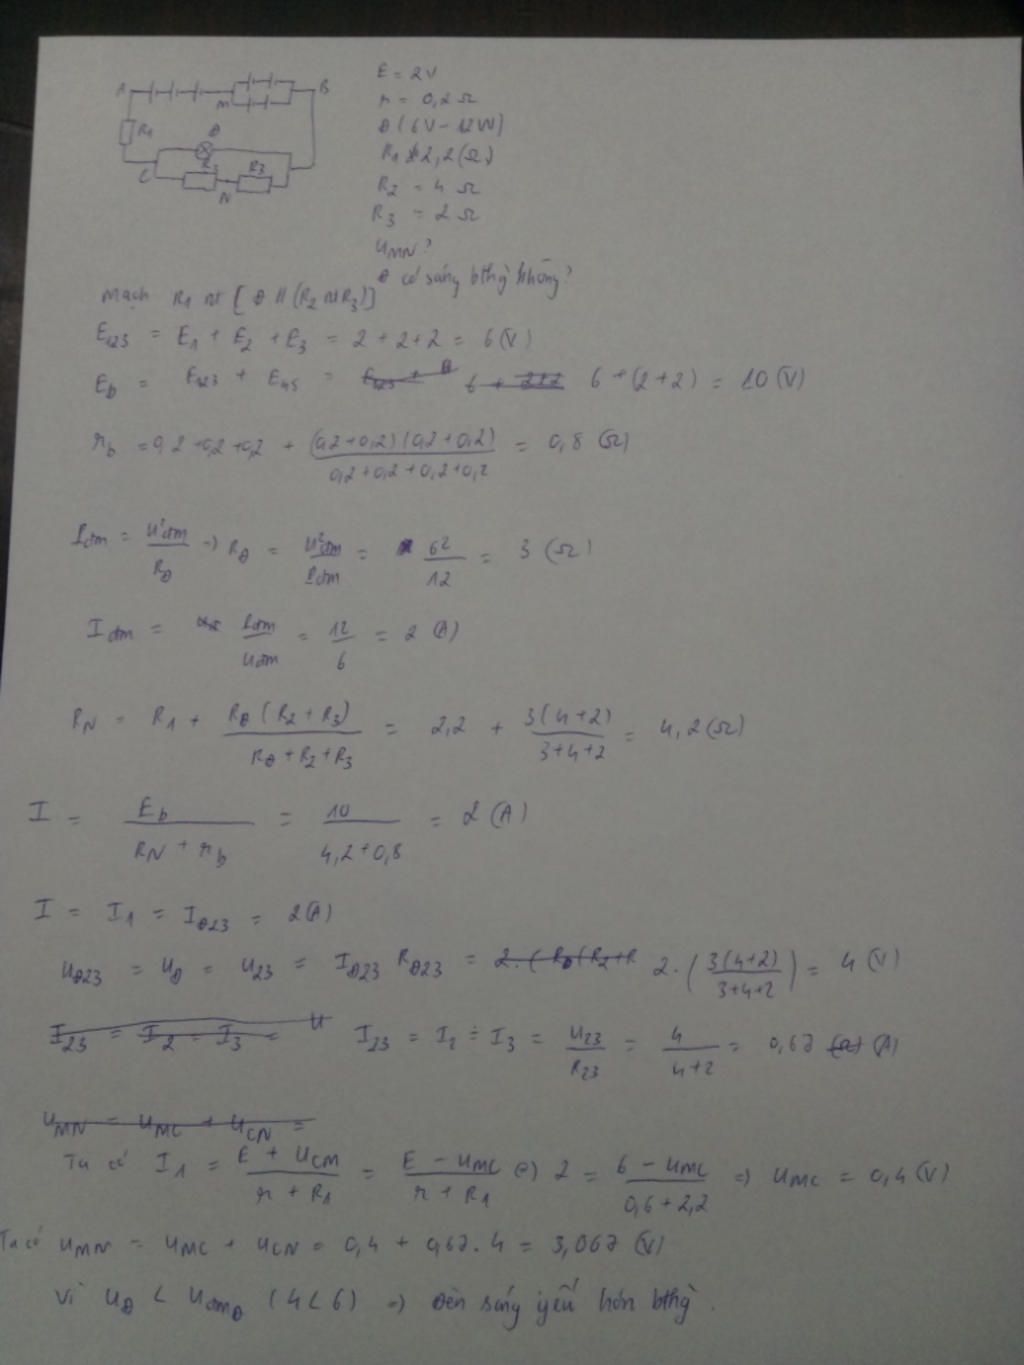 A
M
B
R1
Đ
R2
R3
C
N
E = 2V
r = 0,2 Ω
Đ (6V - 12W)
R1 = 2,2 (Ω)
R2 = 4 Ω
R3 = 2 Ω
UMN ?
Đ có sáng bthg không?
Mạch R1 nt [ Đ // (R2 nt R3)]
E123 = E1 + E2 + E3 = 2 + 2 + 2 = 6 (V)
Eb = E123 + E45 = E123 + Đ 6 + 2+2 6 + (2 + 2) = 10 (V)
rb = 0,2 + 0,2 + 0,2 + (0,2 + 0,2)(0,2 + 0,2) / 0,2 + 0,2 + 0,2 + 0,2 = 0,8 (Ω)
Pđm = U²đm / RĐ => RĐ = U²đm / Pđm = 6² / 12 = 3 (Ω)
Iđm = Pđm / Uđm = 12 / 6 = 2 (A)
RN = R1 + RĐ (R2 + R3) / RĐ + R2 + R3 = 2,2 + 3(4 + 2) / 3+4+2 = 4,2 (Ω)
I = Eb / RN + rb = 10 / 4,2 + 0,8 = 2 (A)
I = I1 = IĐ23 = 2(A)
UĐ23 = UĐ = U23 = IĐ23 RĐ23 = 2. ( RĐ (R2 + R 2. ( 3(4+2) / 3+4+2 ) = 4 (V)
I23 = I2 = I3 = U I23 = I2 = I3 = U23 / R23 = 4 / 4+2 = 0,67 (A)
UMN = UMC + UCN =
Ta có I1 = E + UCM / r + R1 = E - UMC / r + R1 <=> 2 = 6 - UMC / 0,6 + 2,2 => UMC = 0,4 (V)
Ta có UMN = UMC + UCN = 0,4 + 0,67 . 4 = 3,067 (V)
Vì UĐ < UđmĐ (4 < 6) => Đèn sáng yếu hơn bthg.